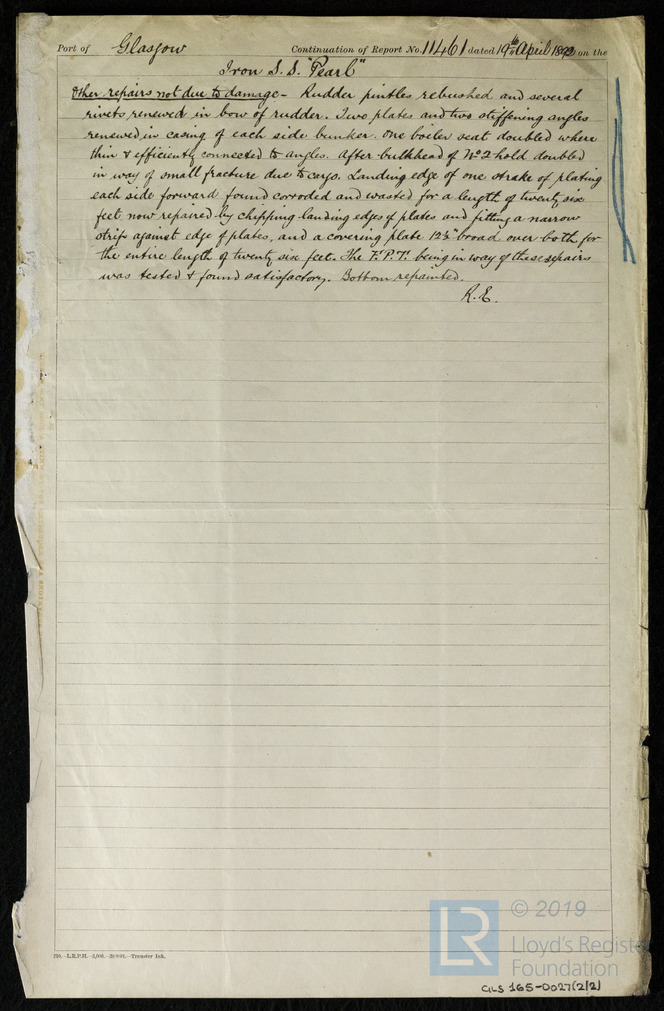 Port of Glasgow Continuation of Report No. 11461 dated 19th April 1893 on the
Iron S.S. "Pearl"
Other repairs not due to damage - Rudder pintles rebushed and several
rivets renewed in bow of rudder. Two plates and two stiffening angles
renewed in casing of each side bunker. One boiler seat doubled where
thin & efficiently connected to angles. After bulkhead of No 2 hold doubled
in way of small fracture due to cargo. Landing edge of one strake of plating
each side forward found corroded and wasted for a length of twenty six
feet now repaired by chipping landing edges of plates and fitting a narrow
strip against edge of plates, and a covering plate 12½" broad over both for
the entire length of twenty six feet. The F.P.T. being in way of these repairs
was tested & found satisfactory. Bottom repainted.
R.E.
L.R.P.H. Transfer Ink.
LR © 2019
Lloyd's Register
Foundation
GLS 165-0027(2/2)